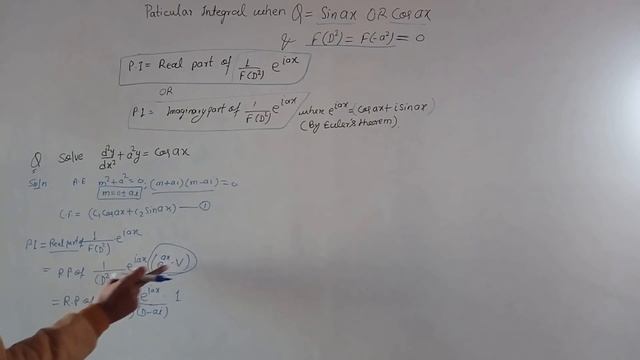 Paticular Integral when Q = Sin ax OR Cos ax
& F(D²) = F(-a²) = 0
P.I = Real part of 1/F(D²) e^iax
OR
P.I = Imaginary part of 1/F(D²) e^iax where e^iax = Cos ax + i Sin ax
(By Euler's theorem)
Q Solve d²y/dx² + a²y = Cos ax
Soln A.E m² + a² = 0, (m+ai)(m-ai) = 0
m = 0 ± ai
C.F = (C₁ Cos ax + C₂ Sin ax) — ①
P.I = Real part of 1/F(D²) e^iax
= R.P of 1/(D² e^iax (e^ax · V)
= R.P of e^iax (D-ai) 1